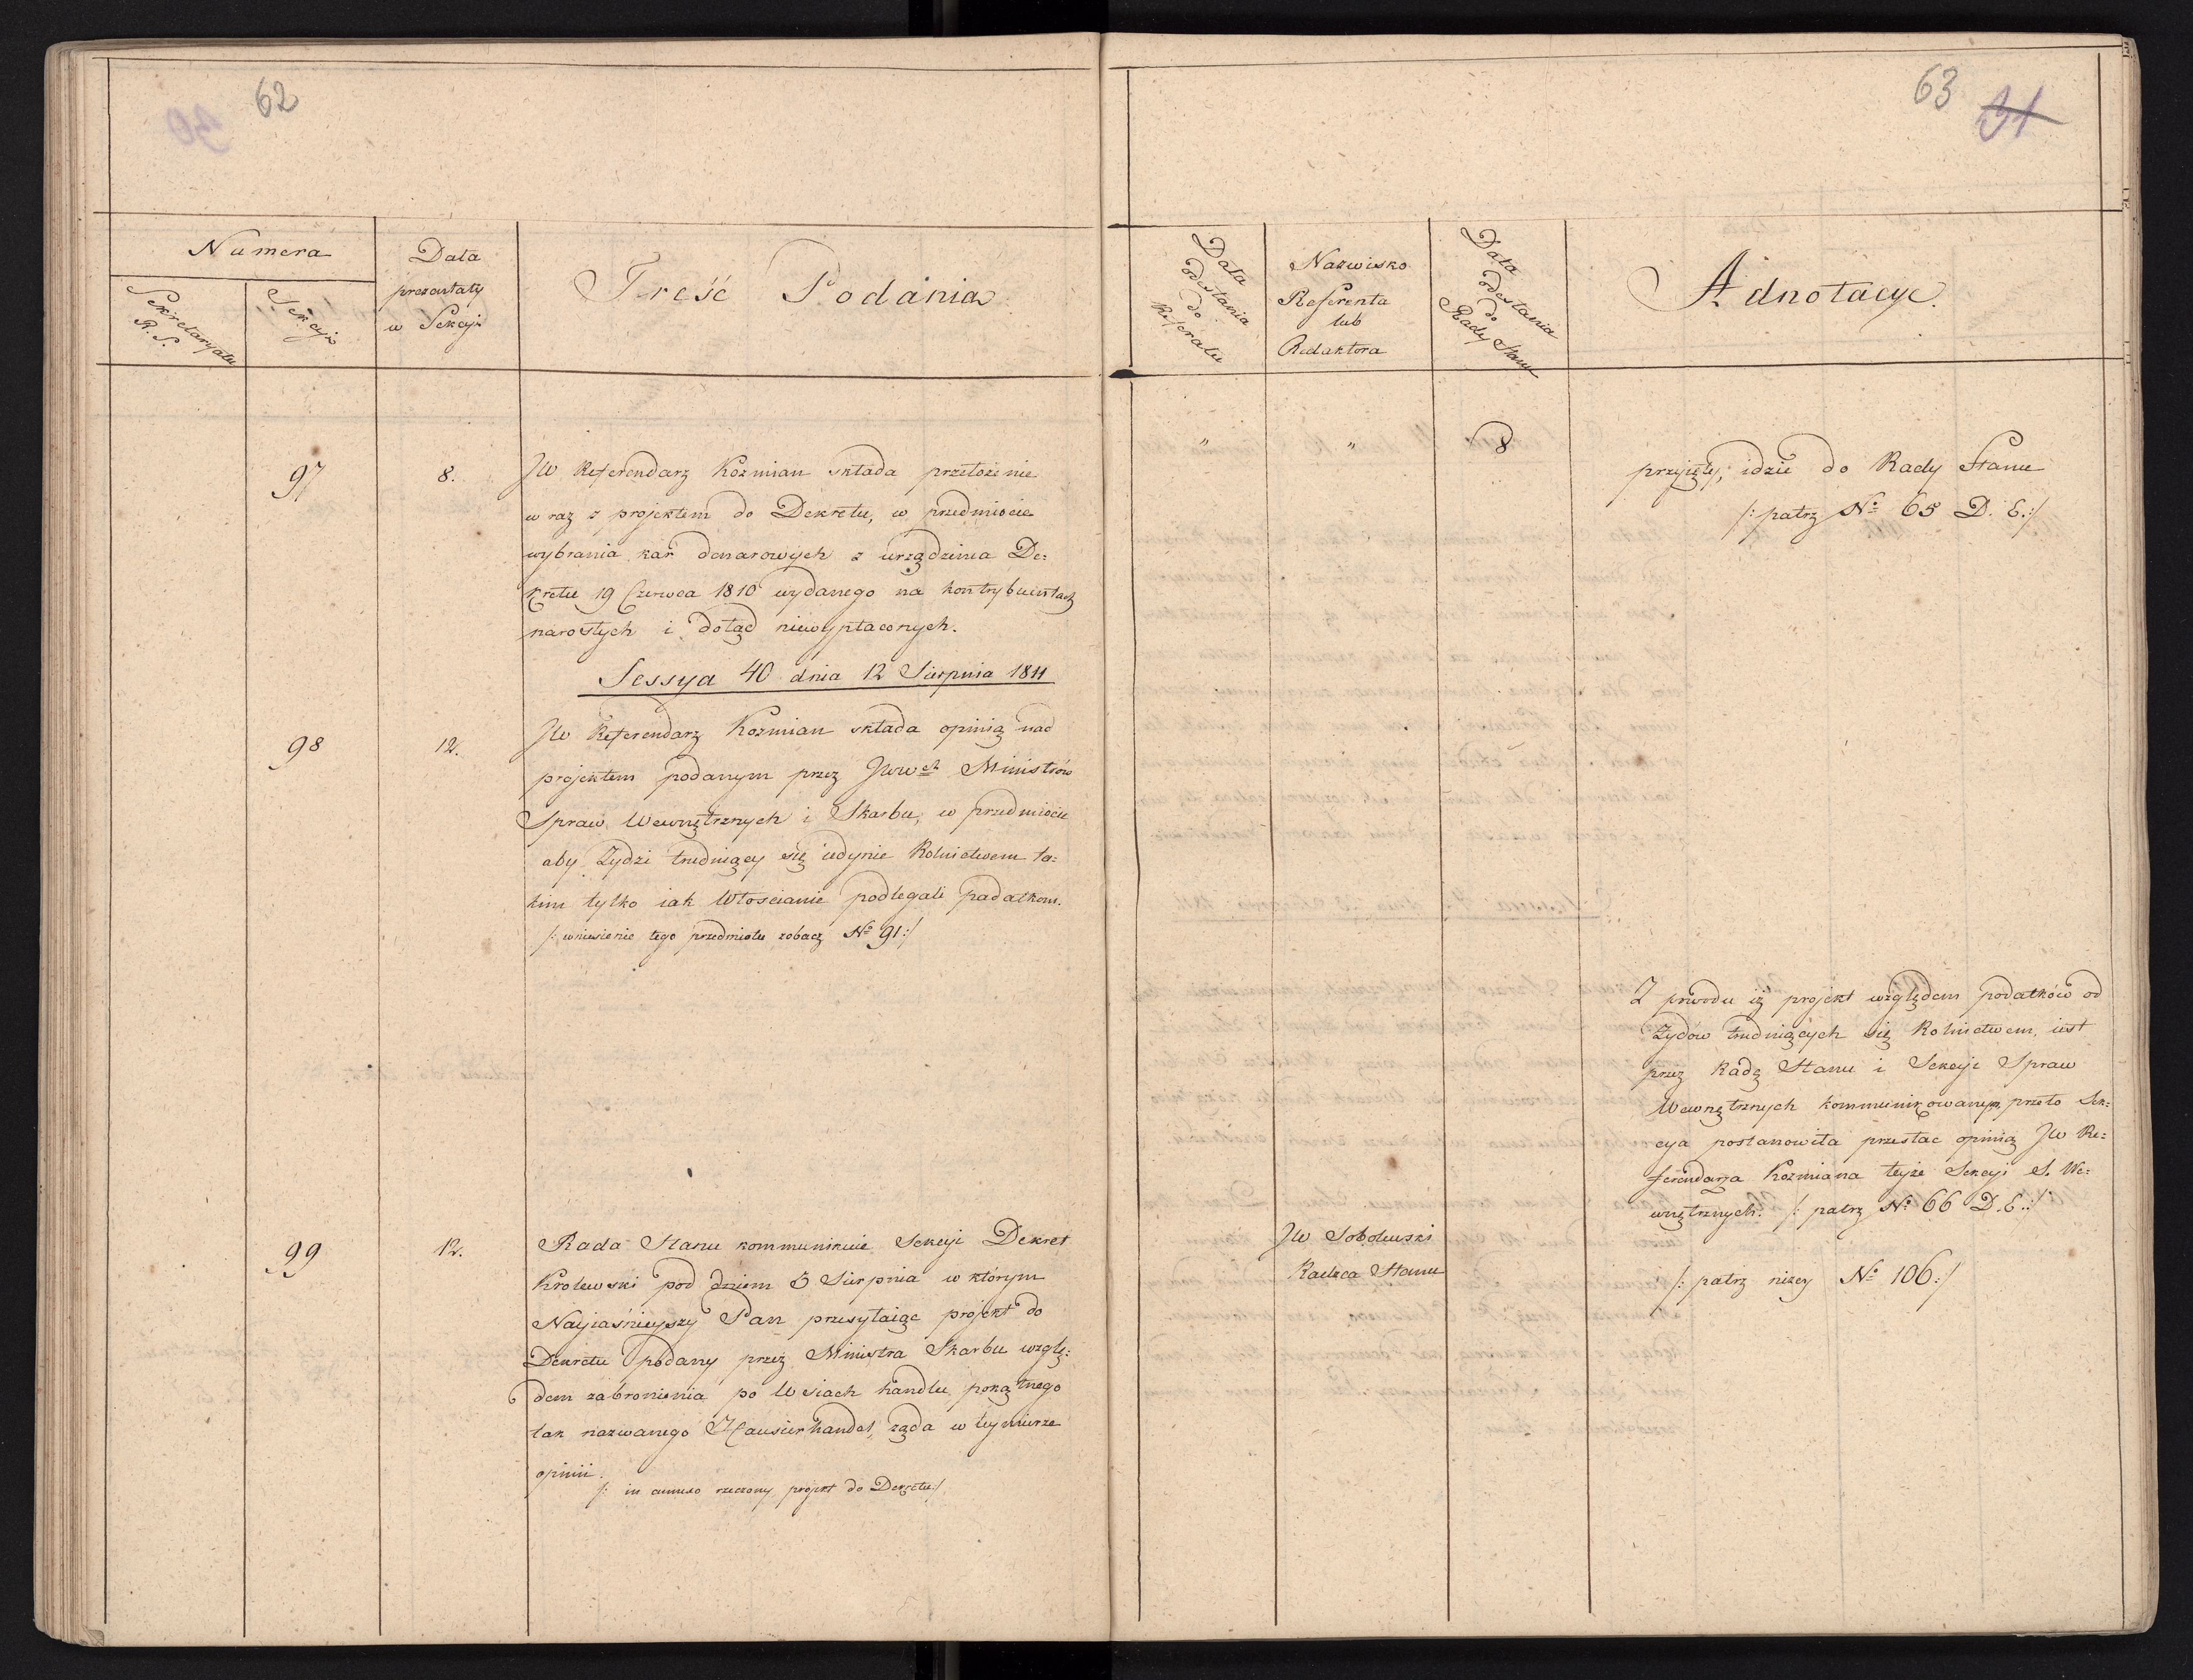 62
30
Numera
Sekretaryatu
R. S.
Sekcyi
Data
prezentaty
w Sekcyi
Treść Podania
97
8.
JW Referendarz Koźmian składa przełożenie
wraz z projektem do Dekretu, w przedmiocie
wybrania kar denarowych z urządzenia De=
kretu 19 Czerwca 1810 wydanego na kontrybuentach
narosłych i dotąd niewypłaconych.
Sessya 40 dnia 12 Sierpnia 1811
98
12.
JW Referendarz Koźmian składa opinią nad
projektem podanym przez JWWch Ministrów
Spraw Wewnętrznych i Skarbu, w przedmiocie
aby Żydzi trudniący się iedynie Rolnictwem ta=
kim tylko iak Włościanie podlegali padatkom.
/: wniesienie tego przedmiotu zobacz No 91:/
99
12.
Rada Stanu kommunikuie Sekcyi Dekret
Krolewski pod dniem 5 Sierpnia w którym
Nayiaśnieyszy Pan przesyłaiąc projekt do
Dekretu podany przez Ministra Skarbu wzglę=
dem zabronienia po Wsiach handlu pokątnego
tak nazwanego Hausierhandel, żąda w tey mierze
opinii.
/: in annexo rzeczony projekt do Dekretu:/
63
31
Data
odesłania
do
Referatu
Nazwisko
Referenta
lub
Redaktora
Data
odesłania
do
Rady Stanu
Adnotacye.
"
"
8
przyięty, idzie do Rady Stanu
/: patrz No 65 D. E.:/
Z powodu iż projekt względem podatków od
Żydów trudniących się Rolnictwem, iest
przez Radę Stanu i Sekcyi Spraw
Wewnętrznych kommunikowanym, przeto Sek=
cya postanowiła przesłać opinią JW Re=
ferendarza Koźmiana teyże Sekcyi S. We=
wnętrznych. /: patrz No 66 D. E.:/
JW Sobolewski
Radzca Stanu
/: patrz niżey No 106:/